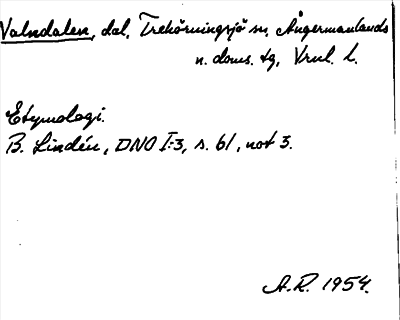 Valndalen, dal, Trehörningsjö sn, Ångermanlands
n. doms. tg, Vrnl. l.
Etymologi.
B. Lindén, DNO I:3, s. 61, not 3.
A.R. 1954.